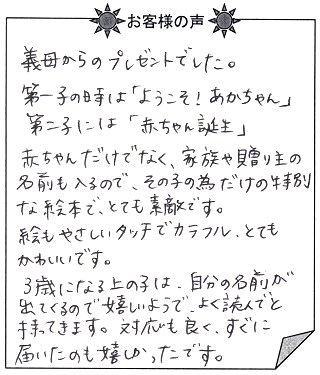 お客様の声
義母からのプレゼントでした。
第一子の時は「ようこそ！あかちゃん」
第二子には「赤ちゃん誕生」
赤ちゃんだけでなく、家族や贈り主の
名前も入るので、その子の為だけの特別
な絵本で、とても素敵です。
絵もやさしいタッチでカラフル、とても
かわいいです。
3歳になる上の子は、自分の名前が
出てくるので嬉しいようで、よく読んでと
持ってきます。対応も良く、すぐに
届いたのも嬉しかったです。